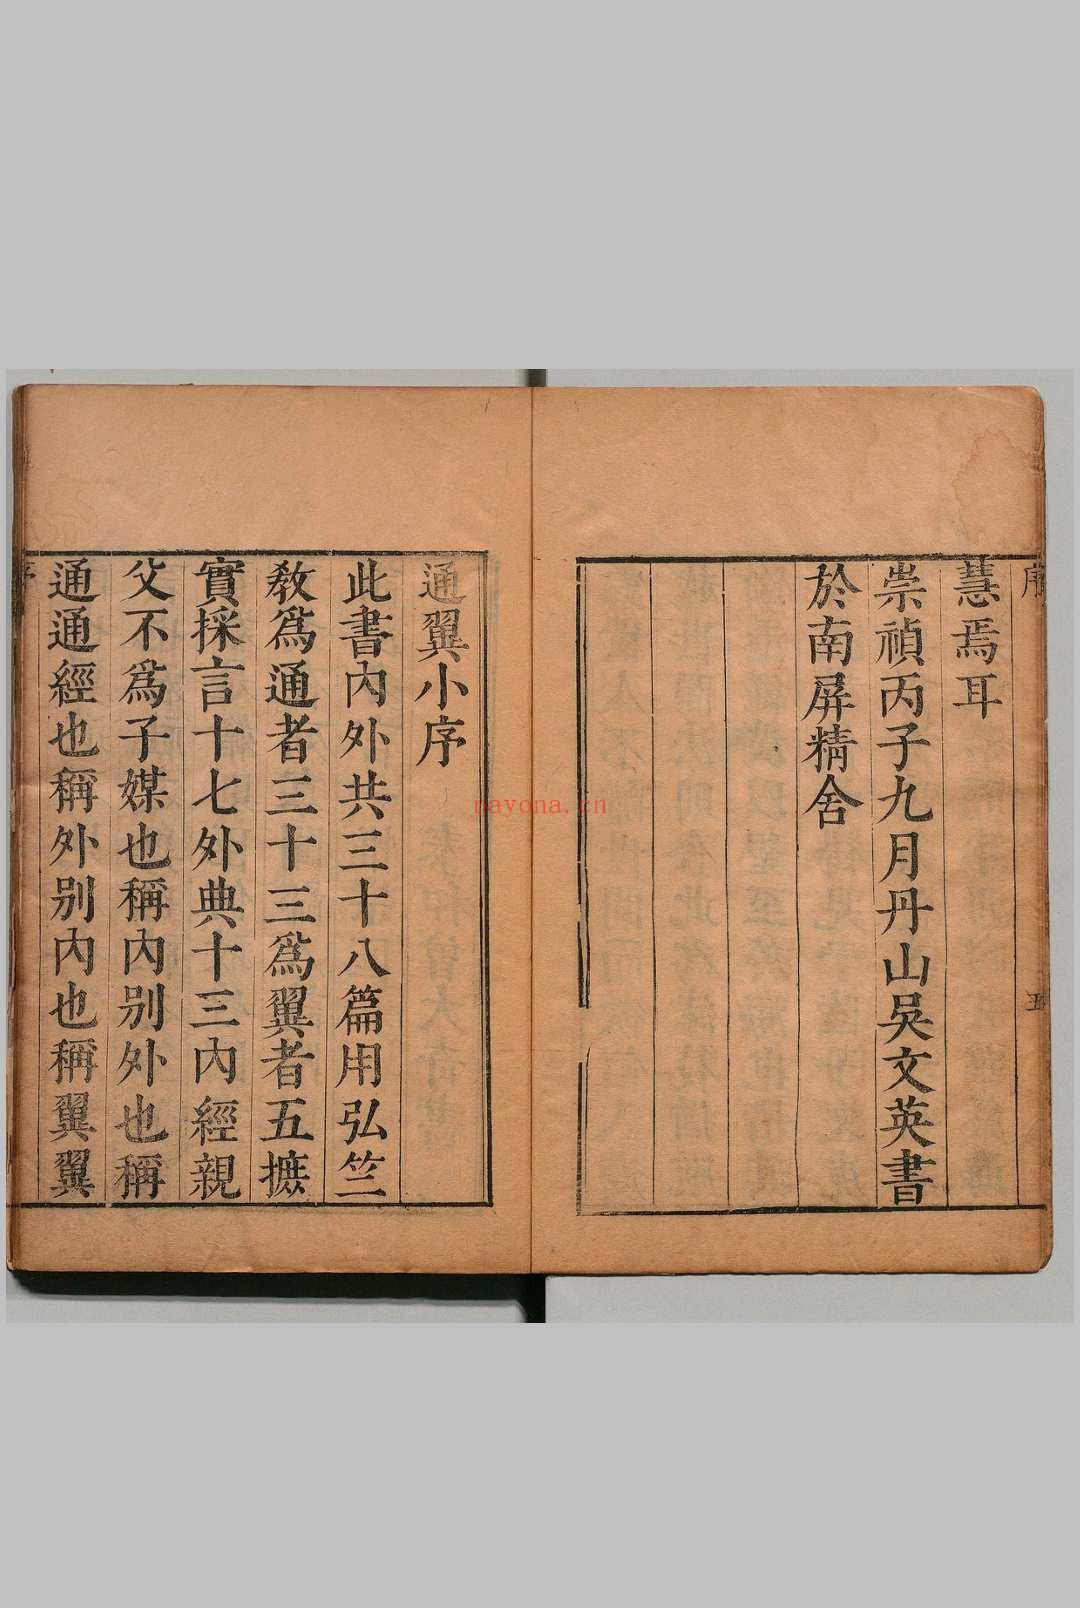 序
五
慧焉耳
崇禎丙子九月丹山吳文英書
於南屏精舍
通翼小序
此書內外共三十八篇用弘竺
敎爲通者三十三爲翼者五摭
實採言十七外典十三內經親
父不爲子媒也稱內别外也稱
通通經也稱外别內也稱翼翼
nayona.cn